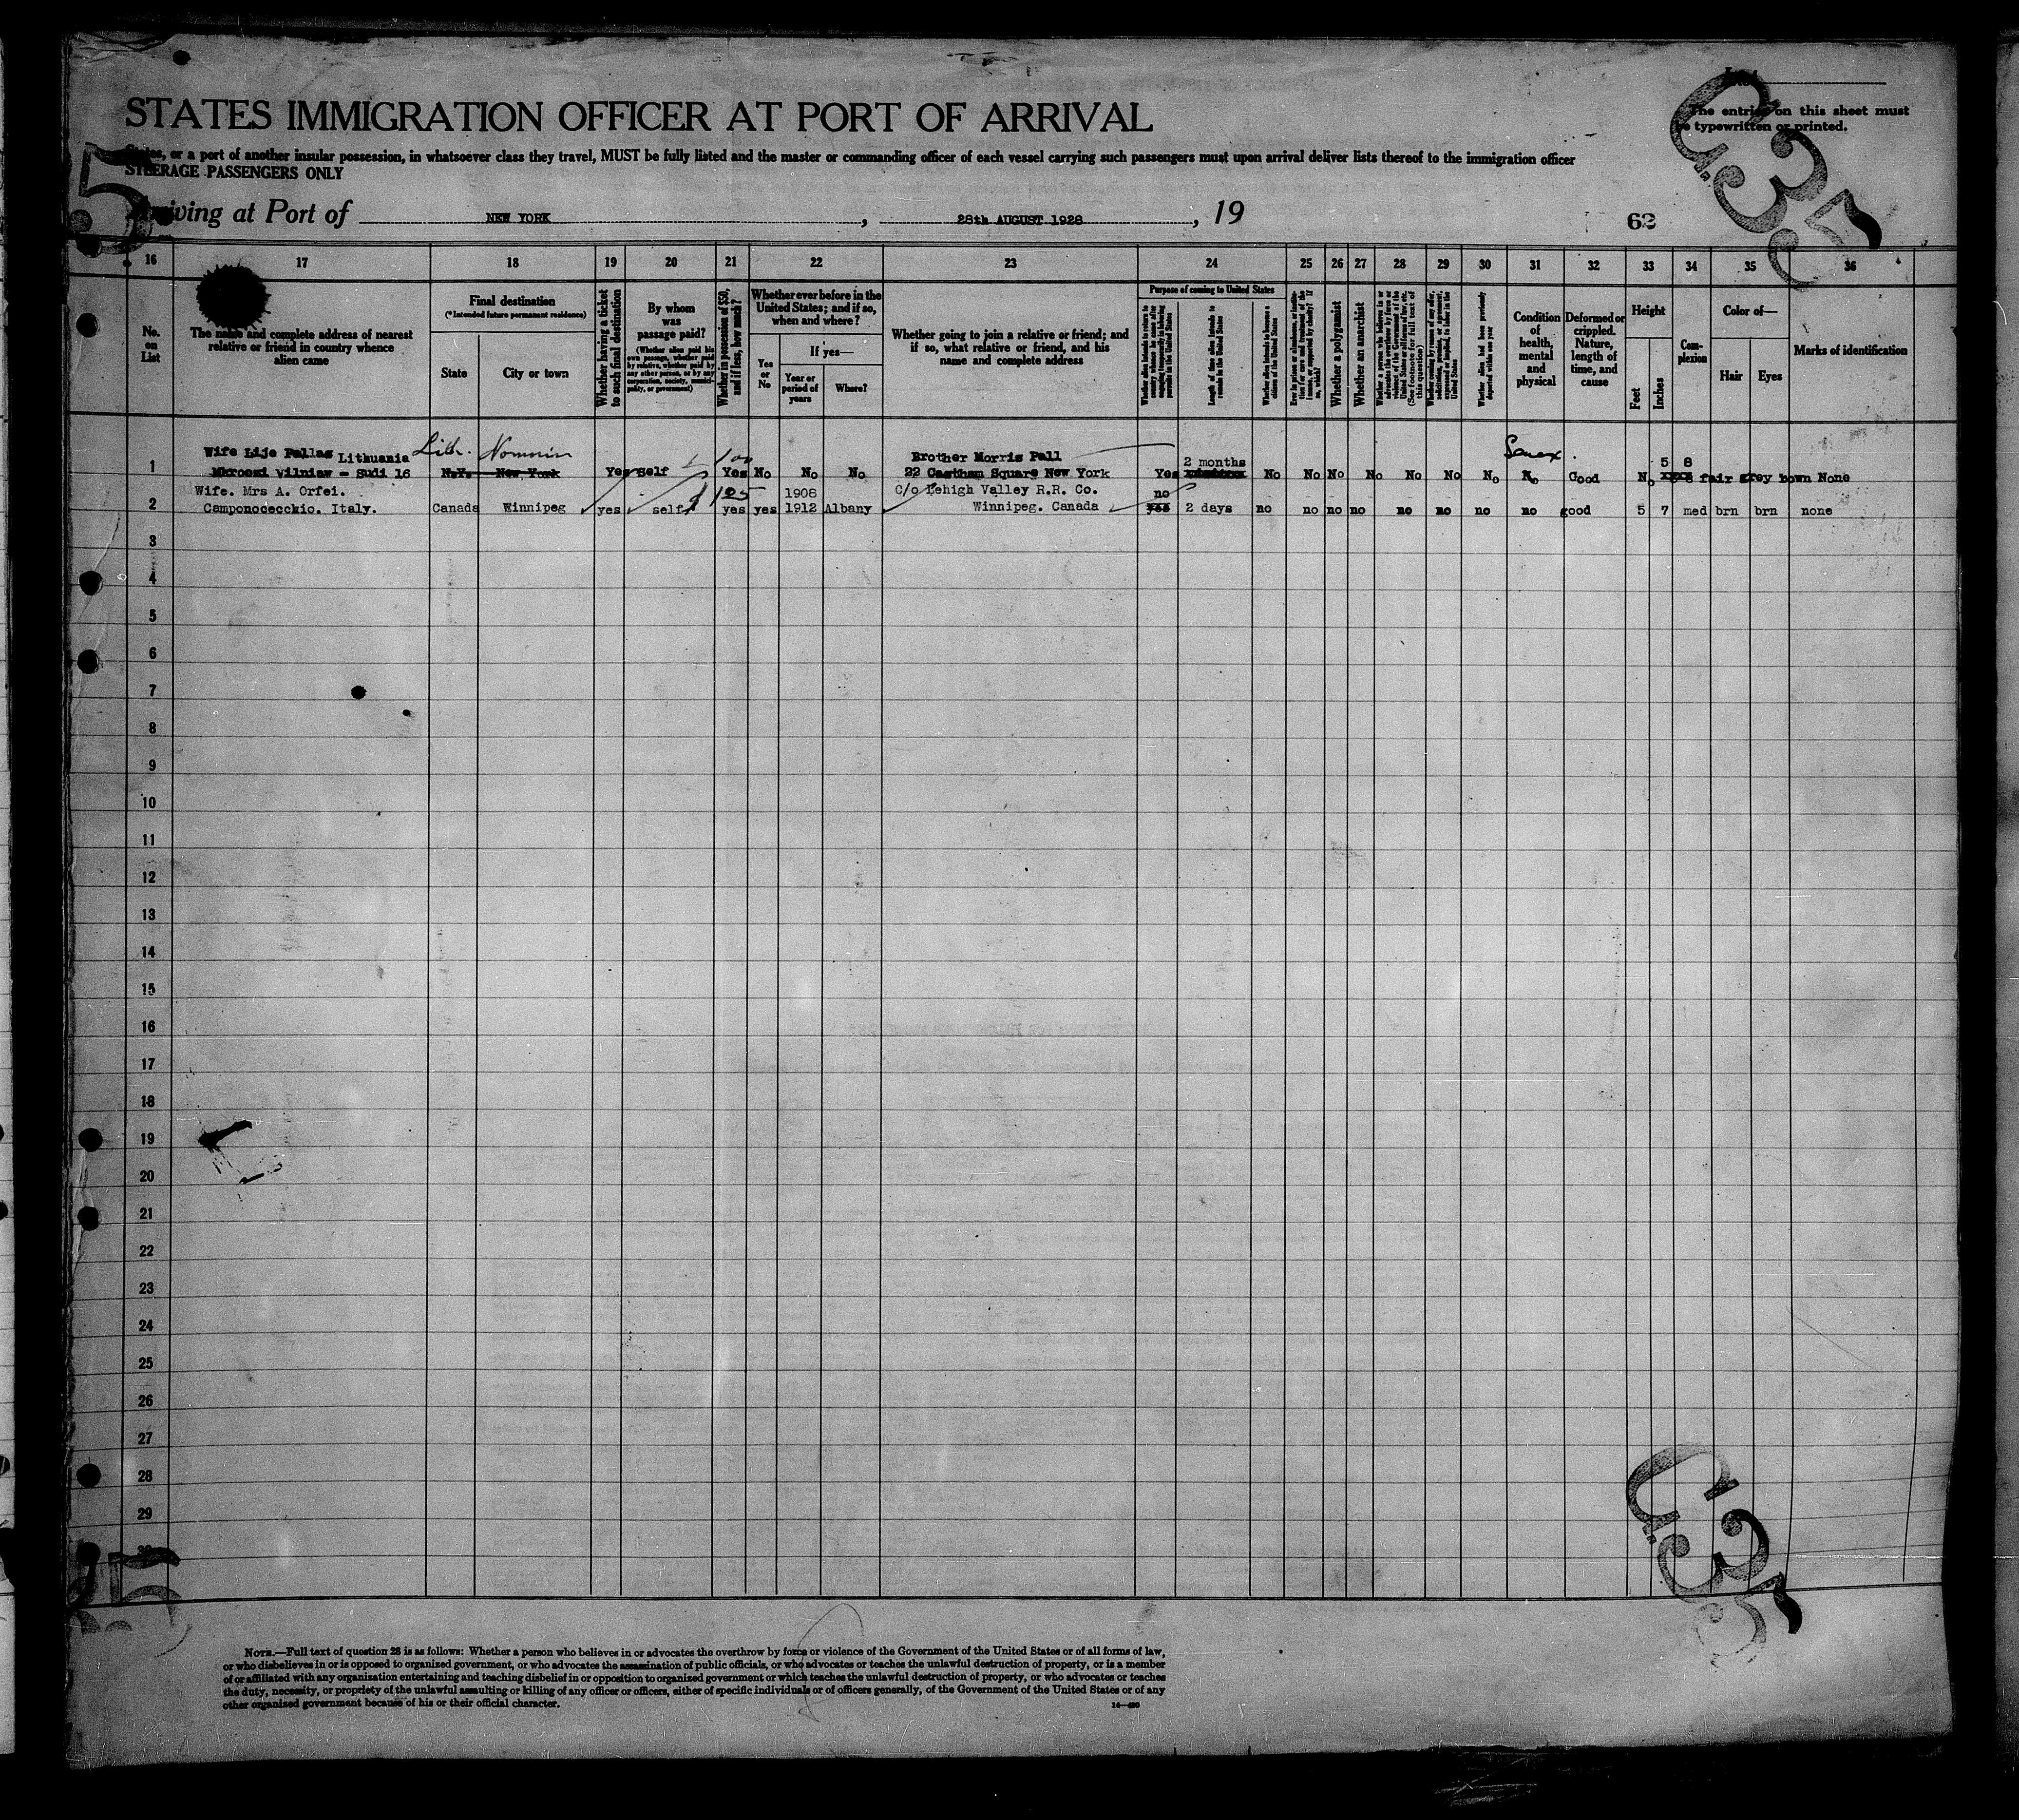 STATES IMMIGRATION OFFICER AT PORT OF ARRIVAL
The entries on this sheet must
be typewritten or printed.
or a port of another insular possession, in whatsoever class they travel, MUST be fully listed and the master or commanding officer of each vessel carrying such passengers must upon arrival deliver lists thereof to the immigration officer
STEERAGE PASSENGERS ONLY
Arriving at Port of NEW YORK, 28th AUGUST 1928, 19
62
16 17 18 19 20 21 22 23 24 25 26 27 28 29 30 31 32 33 34 35 36
No. on List
The name and complete address of nearest relative or friend in country whence alien came
Final destination
(*Intended future permanent residence)
State
City or town
Whether having a ticket to such final destination
By whom was passage paid?
(Whether alien paid his own passage, whether paid by relative, whether paid by any other person, or by any corporation, society, municipality, or government)
Whether in possession of $50, and if less, how much?
Whether ever before in the United States; and if so, when and where?
Yes or No
If yes—
Year or period of years
Where?
Whether going to join a relative or friend; and if so, what relative or friend, and his name and complete address
Purpose of coming to United States
Length of time alien intends to remain in the United States
Whether alien intends to become a citizen of the United States
Whether a polygamist
Whether an anarchist
(See footnote for full text of this question)
Condition of health, mental and physical
Deformed or crippled. Nature, length of time, and cause
Height
Feet
Inches
Complexion
Color of—
Hair
Eyes
Marks of identification
Wife Lije Pallas Lithuania Lith. 100 Brother Morris Pall 2 months 5 8
1 Vilniaw - Sudi 16 N.Y. New York Yes Self Yes No No No 22 Square New York Yes No No No No No No No No Good No fair grey bown None
Wife. Mrs A. Orfei. $125 1908 C/o Lehigh Valley R.R. Co. no
2 Camponocecchio. Italy. Canada Winnipeg yes self yes yes 1912 Albany Winnipeg. Canada yes 2 days no no no no no no no no good 5 7 med brn brn none
3
4
5
6
7
8
9
10
11
12
13
14
15
16
17
18
19
20
21
22
23
24
25
26
27
28
29
30
NOTE.—Full text of question 28 is as follows: Whether a person who believes in or advocates the overthrow by force or violence of the Government of the United States or of all forms of law,
or who disbelieves in or is opposed to organized government, or who advocates the assassination of public officials, or who advocates or teaches the unlawful destruction of property, or is a member
of or affiliated with any organization entertaining and teaching disbelief in or opposition to organized government or which teaches the unlawful destruction of property, or who advocates or teaches
the duty, necessity, or propriety of the unlawful assaulting or killing of any officer or officers, either of specific individuals or of officers generally, of the Government of the United States or of any
other organized government because of his or their official character.